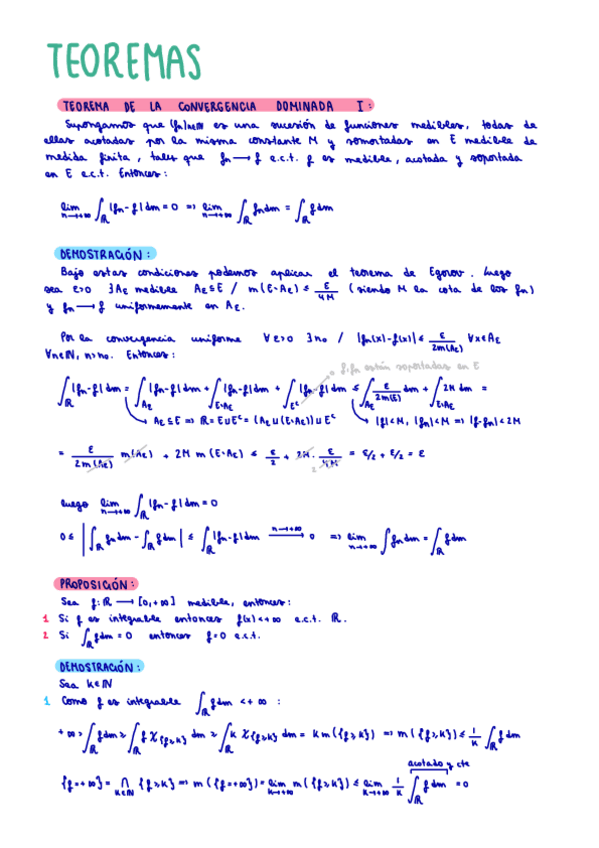 TEOREMAS
TEOREMA DE LA CONVERGENCIA DOMINADA I:
Supongamos que (fn)n∈ℕ es una sucesión de funciones medibles, todas de
ellas acotadas por la misma constante M y somortadas en E medible de
medida finita, tales que fn ⟶ f e.c.t. f es medible, acotada y soportada
en E e.c.t. Entonces:
lim n→+∞ ∫ℝ |fn-f| dm = 0 => lim n→+∞ ∫ℝ fn dm = ∫ℝ f dm
DEMOSTRACIÓN:
Bajo estas condiciones podemos aplicar el teorema de Egorov. Luego
sea ε>0 ∃Aε medible Aε⊆E / m(E∖Aε) ≤ ε/4M (siendo M la cota de los fn)
y fn ⟶ f uniformemente en Aε.
Por la convergencia uniforme ∀ε>0 ∃n₀ / |fn(x)-f(x)| ≤ ε/2m(Aε) ∀x∈Aε
∀n∈ℕ, n>n₀. Entonces:
0 f,fn están soportadas en E
∫ℝ |fn-f| dm = ∫Aε |fn-f| dm + ∫E∖Aε |fn-f| dm + ∫E^c |fn-f| dm ≤ ∫Aε ε/2m(E) dm + ∫E∖Aε 2M dm =
Aε⊆E => ℝ = E∪E^c = (Aε∪(E∖Aε))∪E^c |f|<M, |fn|<M => |f-fn|<2M
= ε/2m(Aε) m(Aε) + 2M m(E∖Aε) ≤ ε/2 + 2M · ε/4M = ε/2 + ε/2 = ε
2
luego lim n→+∞ ∫ℝ |fn-f| dm = 0
0 ≤ |∫ℝ fn dm - ∫ℝ f dm| ≤ ∫ℝ |fn-f| dm ⟶ n→+∞ 0 => lim n→+∞ ∫ fn dm = ∫ℝ f dm
PROPOSICIÓN:
Sea f: ℝ ⟶ [0,+∞] medible, entonces:
1 Si f es integrable entonces f(x)<+∞ e.c.t. ℝ.
2 Si ∫ℝ f dm = 0 entonces f=0 e.c.t.
DEMOSTRACIÓN:
Sea k∈ℕ
1 Como f es integrable ∫ℝ f dm < +∞ :
+∞ > ∫ℝ f dm ≥ ∫ℝ f χ{f≥k} dm ≥ ∫ℝ k χ{f≥k} dm = k m({f≥k}) => m({f≥k}) ≤ 1/k ∫ℝ f dm
acotado y cte
{f=+∞} = ∩ k∈ℕ {f≥k} => m({f=+∞}) = lim k→+∞ m({f≥k}) ≤ lim k→+∞ 1/k ∫ℝ f dm = 0